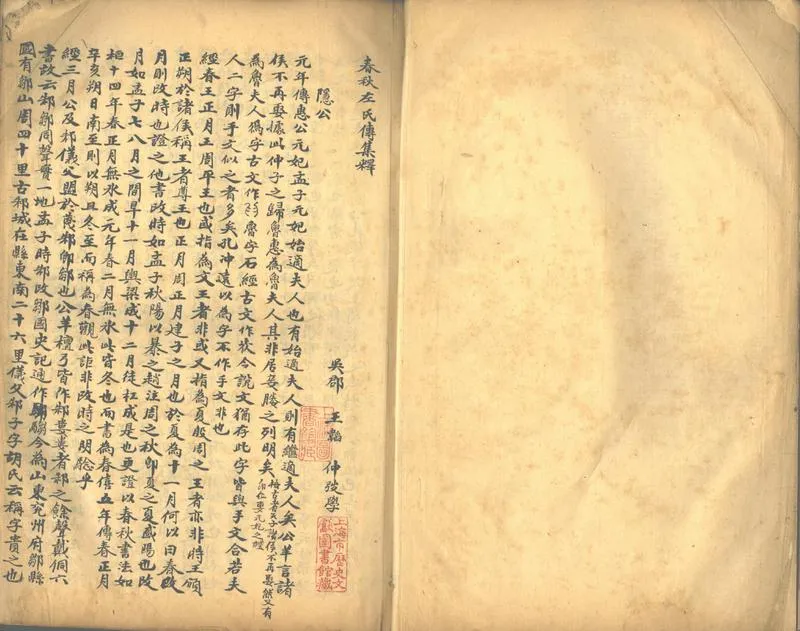 春秋左氏傳集釋
吳郡 王韜 仲弢學
隱公
元年傳惠公元妃孟子元妃始適夫人也有始適夫人則有繼適夫人矣公羊言諸
侯不再娶據此仲子之歸魯惠為魯夫人其非居妾媵之列明矣
為魯夫人爲字古文作魯字石經古文作今說文猶存此字皆與手文合若夫
人二字則手文似之者多矣孔沖遠以為字不作手文非也
經春王正月王周平王也或指為文王者非或又指為夏殷周之王者亦非時王頒
正朔於諸侯稱王者尊王也正月周正月建子之月也於夏為十一月何以曰春改
月則改時也證之他書改時如孟子秋陽以暴之趙注周之秋卽夏之夏盛陽也改
月如孟子七八月之間旱十一月輿梁成十二月徒杠成是也更證以春秋書法如
桓十四年春正月無冰成元年春二月無冰此皆冬也而書為春僖五年傳春正月
辛亥朔日南至則以朔且冬至而稱為春觀此詎非改時之明驗乎
經三月公及邾儀父盟於蔑邾卽鄒也公羊檀弓皆作邾婁婁者邾之餘聲戴侗六
書故云邾鄒同聲實一地孟子時邾改鄒國史記通作騶今為山東兖州府鄒縣
國有鄒山周四十里古邾城在縣東南二十六里儀父邾子字胡氏云稱字貴之也
上海市歷史文獻圖書館藏